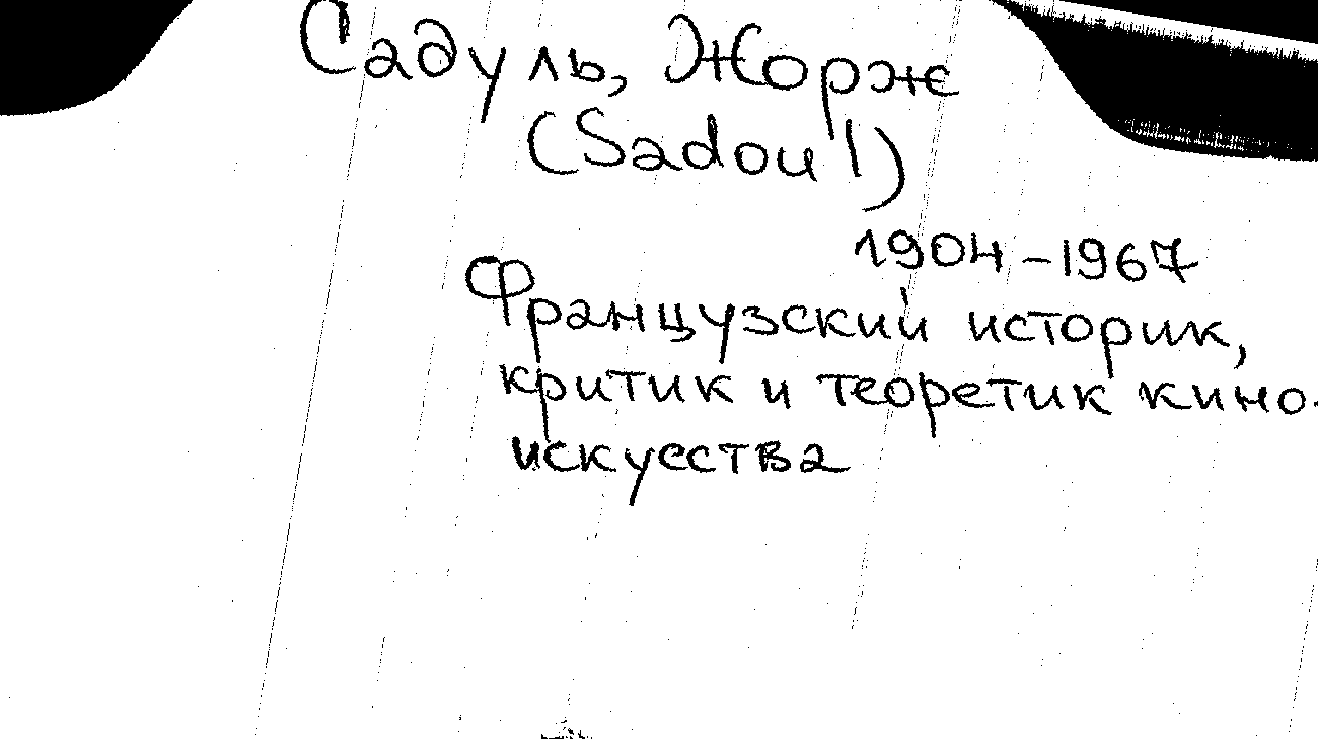 Садуль, Жорж
(Sadoul)
1904-1967
Французский историк,
критик и теоретик кино-
искусства